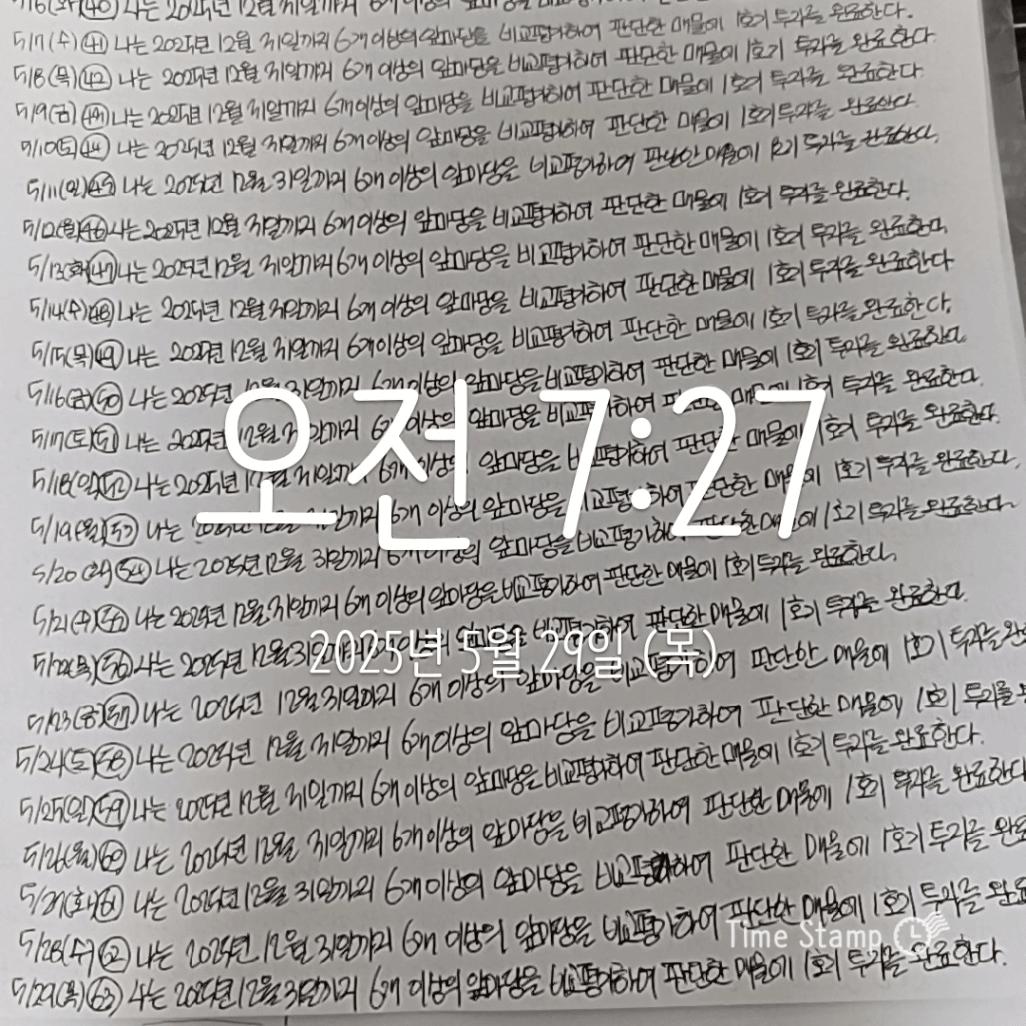 5/6(화)(40) 나는 2025년 12월 31일까지 6개 이상의 앞마당을
5/7(수)(41) 나는 2025년 12월 31일까지 6개 이상의 앞마당을 비교평가하여 판단한 매물에 1호기 투자를 완료한다.
5/8(목)(42) 나는 2025년 12월 31일까지 6개 이상의 앞마당을 비교평가하여 판단한 매물에 1호기 투자를 완료한다.
5/9(금)(43) 나는 2025년 12월 31일까지 6개 이상의 앞마당을 비교평가하여 판단한 매물에 1호기 투자를 완료한다.
5/10(토)(44) 나는 2025년 12월 31일까지 6개 이상의 앞마당을 비교평가하여 판단한 매물에 1호기 투자를 완료한다.
5/11(일)(45) 나는 2025년 12월 31일까지 6개 이상의 앞마당을 비교평가하여 판단한 매물에 1호기 투자를 완료한다.
5/12(월)(46) 나는 2025년 12월 31일까지 6개 이상의 앞마당을 비교평가하여 판단한 매물에 1호기 투자를 완료한다.
5/13(화)(47) 나는 2025년 12월 31일까지 6개 이상의 앞마당을 비교평가하여 판단한 매물에 1호기 투자를 완료한다.
5/14(수)(48) 나는 2025년 12월 31일까지 6개 이상의 앞마당을 비교평가하여 판단한 매물에 1호기 투자를 완료한다
5/15(목)(49) 나는 2025년 12월 31일까지 6개 이상의 앞마당을 비교평가하여 판단한 매물에 1호기 투자를 완료한다.
5/16(금)(50) 나는 2025년 12월 31일까지 6개 이상의 앞마당을 비교평가하여 판단한 매물에 1호기 투자를 완료한다.
5/17(토)(51) 나는 2025년 12월 31일까지 6개 이상의 앞마당을 비교평가하여 판단한 매물에 1호기 투자를 완료한다.
오전 7:27
5/18(일)(52) 나는 2025년 12월 31일까지 6개 이상의 앞마당을 비교평가하여 판단한 매물에 1호기 투자를 완료한다.
5/19(월)(53) 나는 2025년 12월 31일까지 6개 이상의 앞마당을 비교평가하여 판단한 매물에 1호기 투자를 완료한다.
5/20(화)(54) 나는 2025년 12월 31일까지 6개 이상의 앞마당을 비교평가하여 판단한 매물에 1호기 투자를 완료한다.
5/21(수)(55) 나는 2025년 12월 31일까지 6개 이상의 앞마당을 비교평가하여 판단한 매물에 1호기 투자를 완료한다.
5/22(목)(56) 나는 2025년 12월 31일까지 앞마당을 비교평가하여 판단한 매물에 1호기 투자를 완료한다.
2025년 5월 29일 (목)
5/23(금)(57) 나는 2025년 12월 31일까지 6개 이상의 앞마당을 비교평가하여 판단한 매물에 1호기 투자를 완료
5/24(토)(58) 나는 2025년 12월 31일까지 6개 이상의 앞마당을 비교평가하여 판단한 매물에 1호기 투자를
5/25(일)(59) 나는 2025년 12월 31일까지 6개 이상의 앞마당을 비교평가하여 판단한 매물에 1호기 투자를 완료한다.
5/26(월)(60) 나는 2025년 12월 31일까지 6개 이상의 앞마당을 비교평가하여 판단한 매물에 1호기 투자를 완료한다
5/27(화)(61) 나는 2025년 12월 31일까지 6개 이상의 앞마당을 비교평가하여 판단한 매물에 1호기 투자를 완료
5/28(수)(62) 나는 2025년 12월 31일까지 6개 이상의 앞마당을 비교평가하여 판단한 매물에 1호기 투자를 완료
Time Stamp
5/29(목)(63) 나는 2025년 12월 31일까지 6개 이상의 앞마당을 비교평가하여 판단한 매물에 1호기 투자를 완료한다.